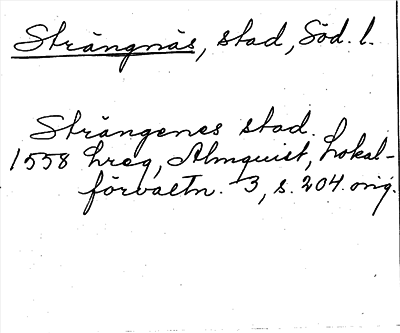 Strängnäs, stad, Söd. l.
Strängenes stad.
1558 hreg, Almquist, Lokal-
förvaltn. 3, s. 204. orig.